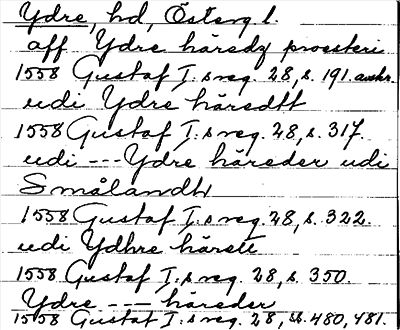 Ydre, hd, Österg l.
aff Ydre häredz prosteri
1558 Gustaf I:s reg. 28, s. 191 avskr.
udi Ydre häredtt
1558 Gustaf I:s reg. 28, s. 317.
udi --- Ydre häreder udi
Smålandh
1558 Gustaf I:s reg. 28, s. 322.
udi Ydhre härett
1558 Gustaf I:s reg. 28, s. 350.
Ydre --- häreder
1558 Gustaf I:s reg. 28, s. 480, 481.